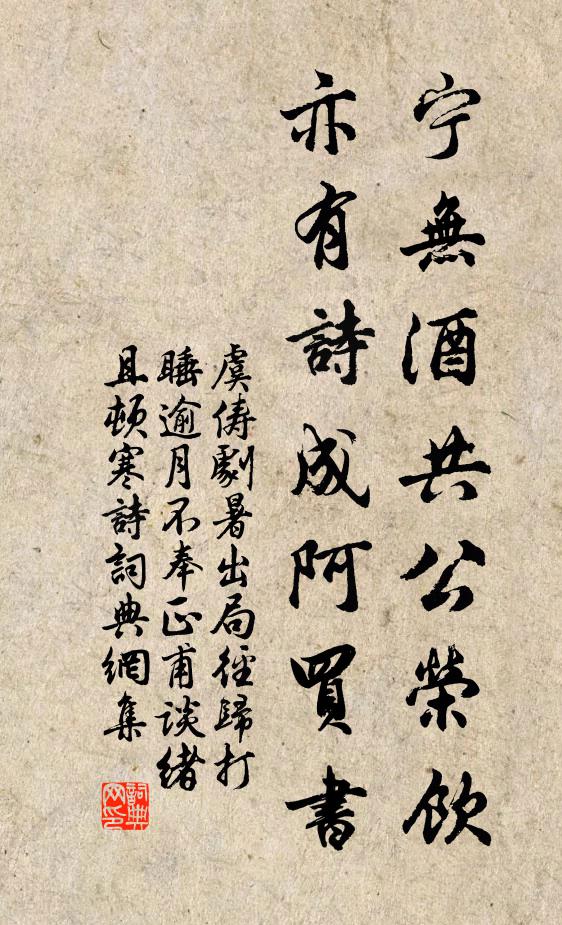 宁無酒共公榮飲
亦有詩成阿買書
虞儔劇暑出局徑歸打
睡逾月不奉正甫談緒
且頓寒詩詞典網集
詞典
网印